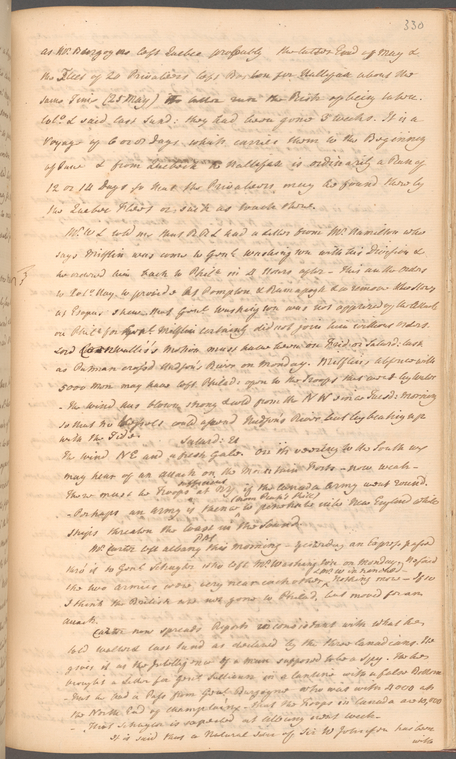 330
as Mr Burgoyne left Quebec probably the latter End of May &
the Fleet of 20 Privateers left Boston for Hallifax about the
same Time (25 May) the latter run the Risk of being taken.
said last Sund: they had been gone 3 weeks. It is a
Voyage of 6 or 8 Days which carries them to the Beginning
of June & from Quebeck to Hallifax is ordinarily a Run of
12 or 14 Days so that the Privateers may be found there by
the Quebec Fleet or such as touch there.
Mr W L told me that R R L had a Letter from Mr Hamilton who
says Mifflin was come to Genl Washington with his Division &
he ordered him back to Philda in 4 Hours after - This and the Orders
to Colo Hay to provide at Pompton & Ramapogh & to remove the Stores
at Esopus shew that Genl Washington was not apprized of the Attack
on Philda for Genl Mifflin certainly did not join him without Orders.
Lord Cornwallis's Motion must have been on Frid or Saturd: last
as Putnam crossed Hudson's River on Monday. Mifflin's Absence with
5000 Men may have left Philad: open to the Troops that went by Water
- The Wind has blown strong & cold from the N W since Tuesd: Morning
so that no Vessels could ascend Hudson's River but by beating up
with the Tide.
Saturd: 28
The wind N E and a fresh Gale. On its veering to the South we
may hear of an Attack on the Mountain Forts - now weak -
There must be Troops sufficient at N Y if the Canada Army went round.
- Perhaps an Army is thence to penetrate into New England while
Ships threaten the Coast in the Sound.
P M
Mr Carter left Albany this Morning - Yesterday an Express passed
thro' it to Genl Schuyler who left Mr Washington on Monday, He said
the two Armies were very near each other, Nothing more -
I think the British are not gone to Philad, but moved for an
Attack.
Carter now spreads Reports inconsistent with what he
told Wallace last Sund as declared by the three Canadians. He
gives it as the Intelligence of a Man supposed to be a Spy. That he
brought a Letter for Genl Sullivan in a Canteen with a false Bottom
- That he had a Pass from Genl Burgoyne who was with 4000 at
the North End of Champlain - that the Troops in Canada are 12,000
- That Schuyler is expected at Albany next Week -
It is said that a Natural Son of Sir W Johnson has been
with